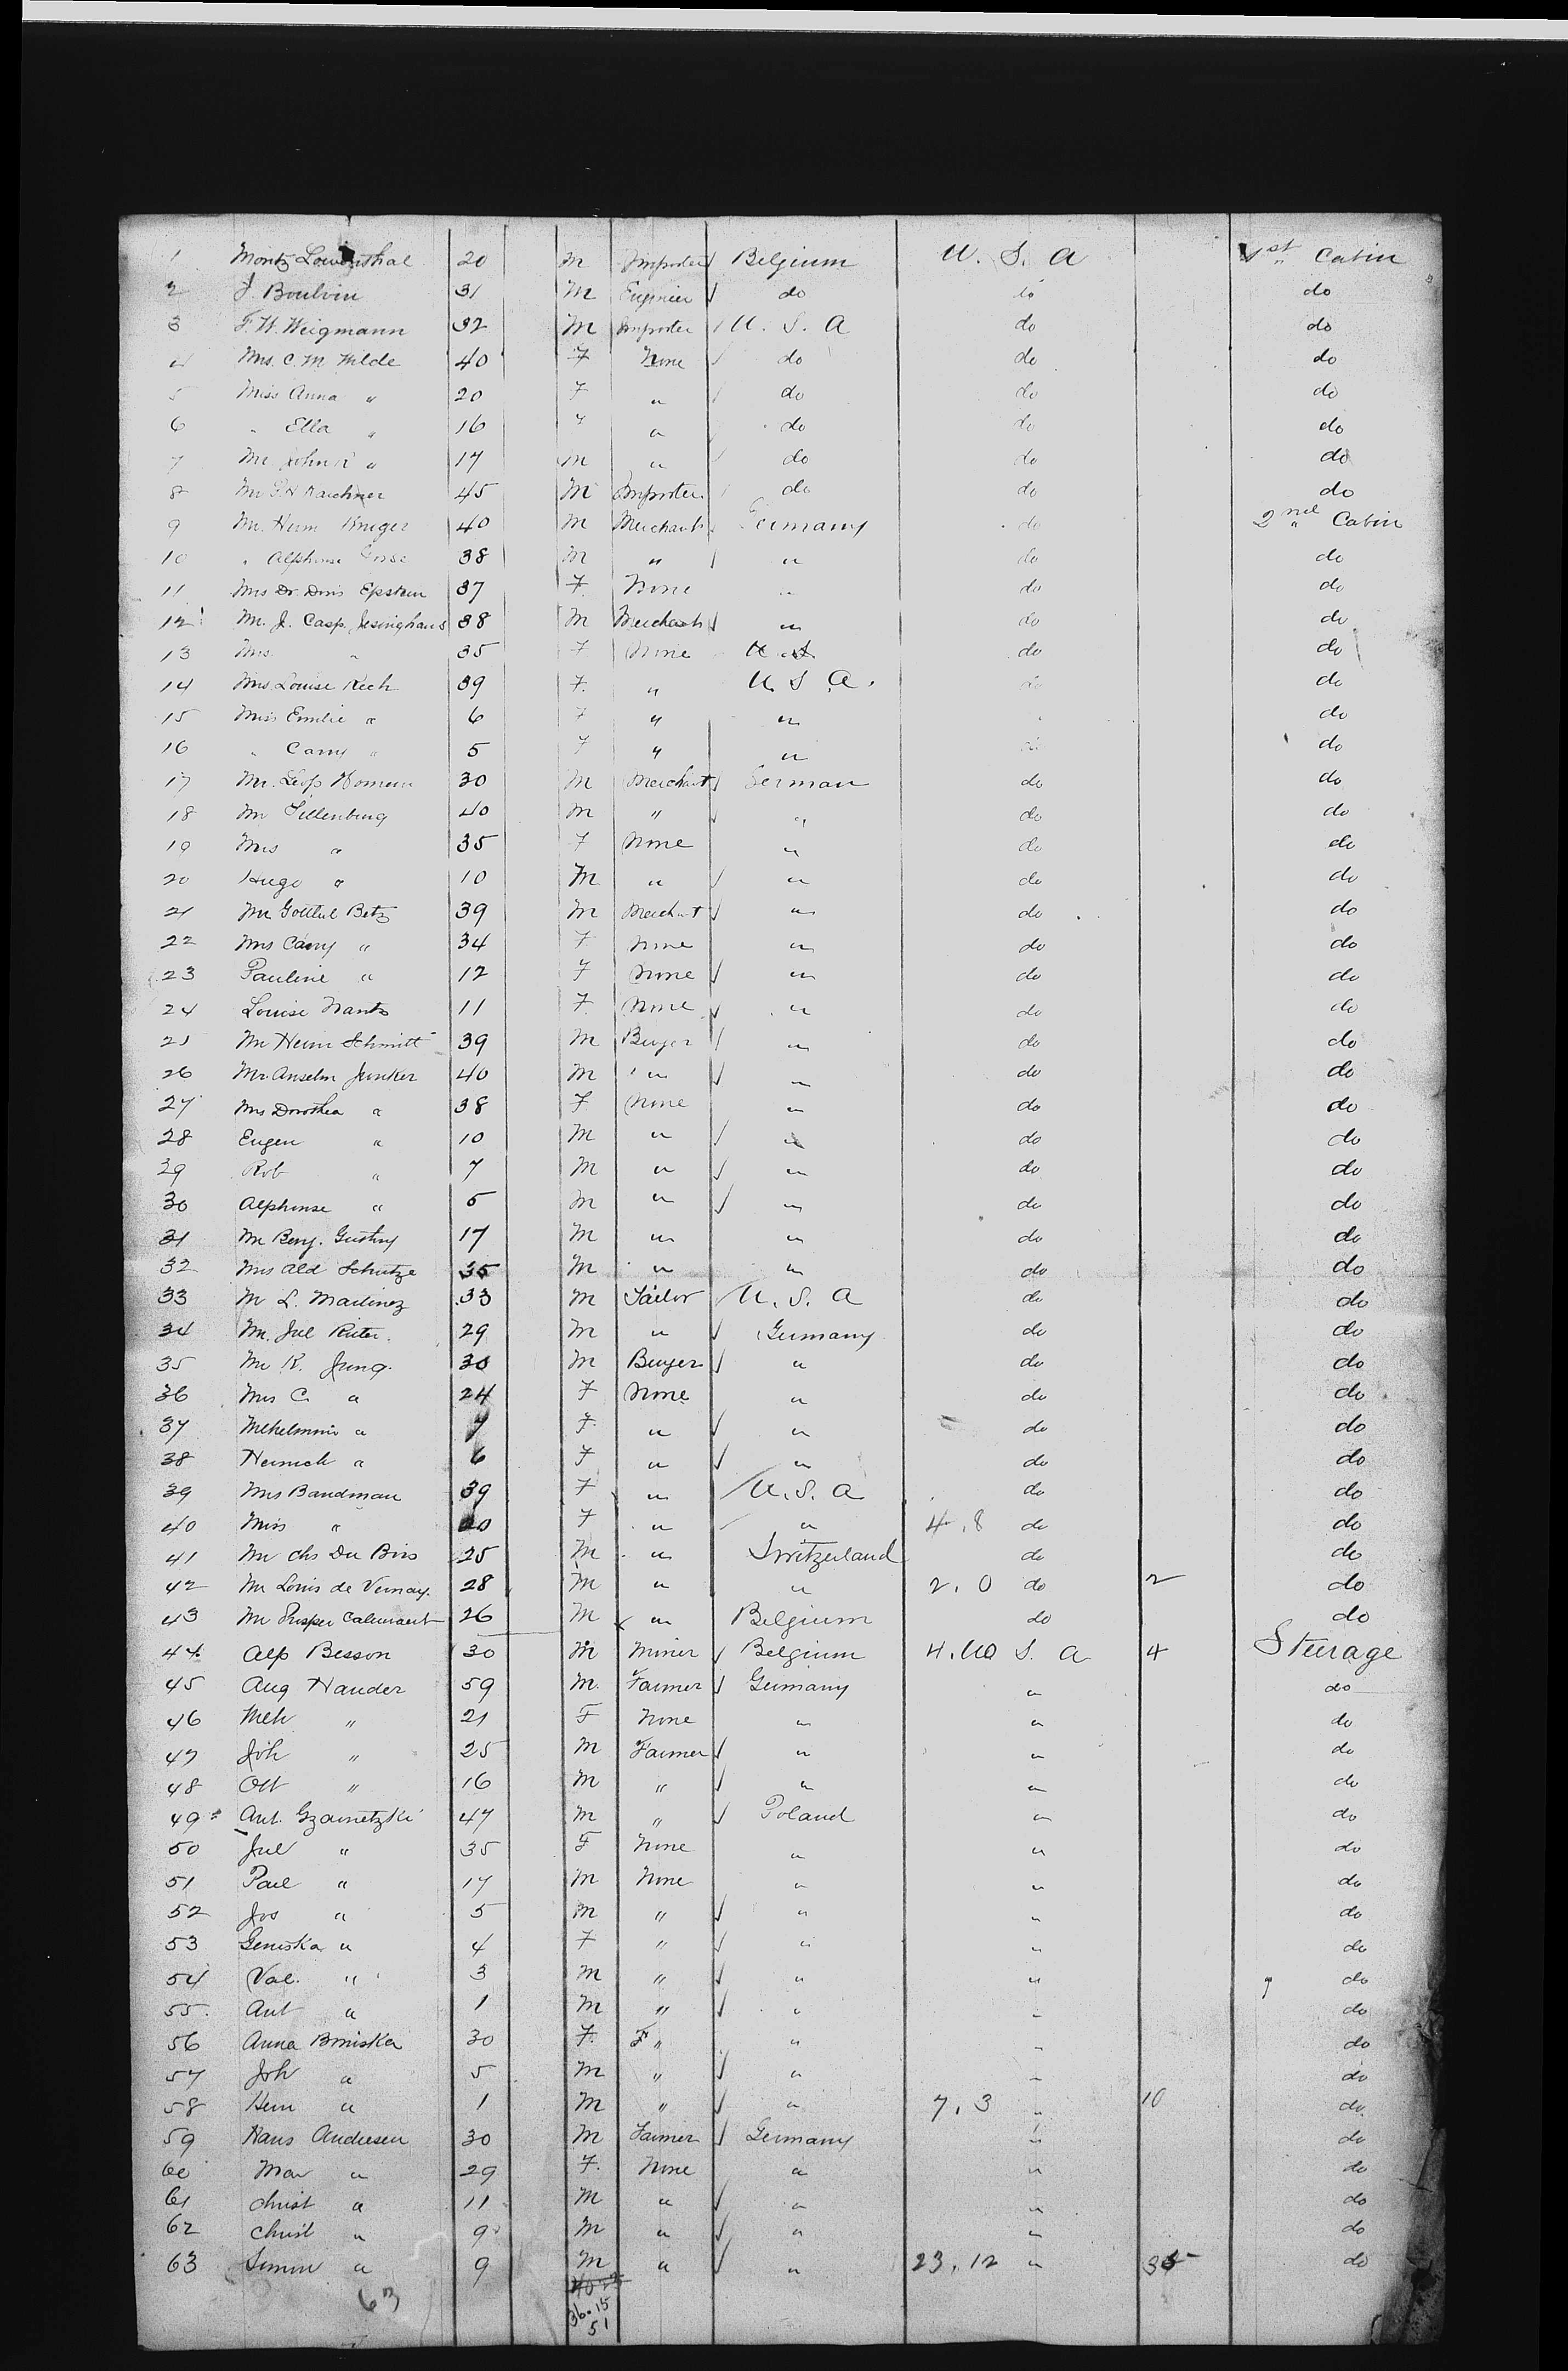 1 Moritz Lowenthal 20 M Importer Belgium U. S. A 1st Cabin
2 J. Boulvin 31 M Engineer do do do
3 F. W. Weigmann 32 M Importer U. S. A do do
4 Mrs. C. M. Milde 40 F None do do do
5 Miss Anna " 20 F " do do do
6 " Ella " 16 " " do do do
7 Mr John R " 17 M " do do do
8 Mr 45 M Importer do do do
9 Mr. Herm Kruger 40 M Merchant Germany do 2nd Cabin
10 " Alphonse 38 M " " do do
11 Mrs Dr. Doris Epstein 37 F. None " do do
12 Mr. J. Casp. Jesinghaus 38 M Merchant " do do
13 Mrs. " 35 F None do do
14 Mrs Louise Rech 39 F. " U. S. A. do do
15 Miss Emilie " 6 F " " " do
16 " Carry " 5 F " " do do
17 Mr. Leop 30 M Merchant German do do
18 Mr Sillenburg 40 M " " do do
19 Mrs " 35 F None " do do
20 Hugo " 10 M " " do do
21 Mr Gottlieb Betz 39 M Merchant " do do
22 Mrs Carry " 34 F None " do do
23 Pauline " 12 F None " do do
24 Louise Nantz 11 F. None " do do
25 Mr Heinr Schmitt 39 M Buyer " do do
26 Mr. Anselm Junker 40 M " " do do
27 Mrs Dorothea " 38 F None " do do
28 Eugen " 10 M " " do do
29 Rob " 7 M " " do do
30 Alphonse " 5 M " " do do
31 Mr Benj. 17 M " " do do
32 Mrs Ald Schutze 35 M " " do do
33 M L. Martinez 33 M Sailor U. S. A do do
34 Mr. Jul Ritter. 29 M " Germany do do
35 Mr R. Jung. 30 M Buyer " do do
36 Mrs C. " 24 F None " do do
37 " 7 F. " " do do
38 Heinrich " 6 F " " do do
39 Mrs Bandman 39 F " U. S. A. do do
40 Miss " 20 F " " 4.8 do do
41 Mr Chs Du Bois 25 M " Switzerland do do
42 Mr Louis de Vernay. 28 M " " 2.0 do 2 do
43 Mr Prosper 26 M " Belgium do do
44 Alp Besson 30 M Miner Belgium 4. U S. A 4 Steerage
45 Aug Hander 59 M. Farmer Germany " do
46 " 21 F None " " do
47 Joh " 25 M Farmer " " do
48 Ott " 16 M " " " do
49 Ant. Gzarnetzki 47 M " Poland " do
50 Jul " 35 F None " " do
51 Paul " 17 M None " " do
52 Jos " 5 M " " " do
53 Geniska " 4 F " " " do
54 Val. " 3 M " " " do
55. Ant " 1 M " " " do
56 Anna Briniska 30 F. F " " " do
57 Joh " 5 M " " " do
58 Hein " 1 M " " 7.3 " 10 do
59 Hans Andresen 30 M Farmer Germany " do
60 Mar " 29 F. None " " do
61 Christ " 11 M " " " do
62 Christ " 9 M " " " do
63 Simon " 9 M " " 23.12 " 35 do
63
36.15
51